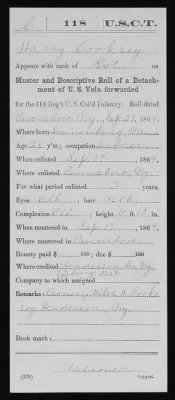 C | 118 | U.S.C.T.
Harry Cooksey
Appears with rank of Pvt. on
Muster and Descriptive Roll of a Detach-
ment of U. S. Vols. forwarded
for the 118 Reg't U.S. Col'd Infantry. Roll dated
Owensboro Ky, Sep 23, 1864.
Where born
Age 23 y'rs; occupation Laborer
When enlisted Sep 17, 1864.
Where enlisted Owensboro Ky
For what period enlisted 3 years.
Eyes Blk; hair Blk
Complexion Blk; height 5 ft. 10 in.
When mustered in Sep 17, 1864.
Where mustered in Owensboro
Bounty paid $ 100; due $ 100
Where credited Henderson Co Ky,
Company to which assigned
Remarks: Owner, Miles H. Cook-
sey, Henderson, Ky.
Book mark:
(339) Copyist.